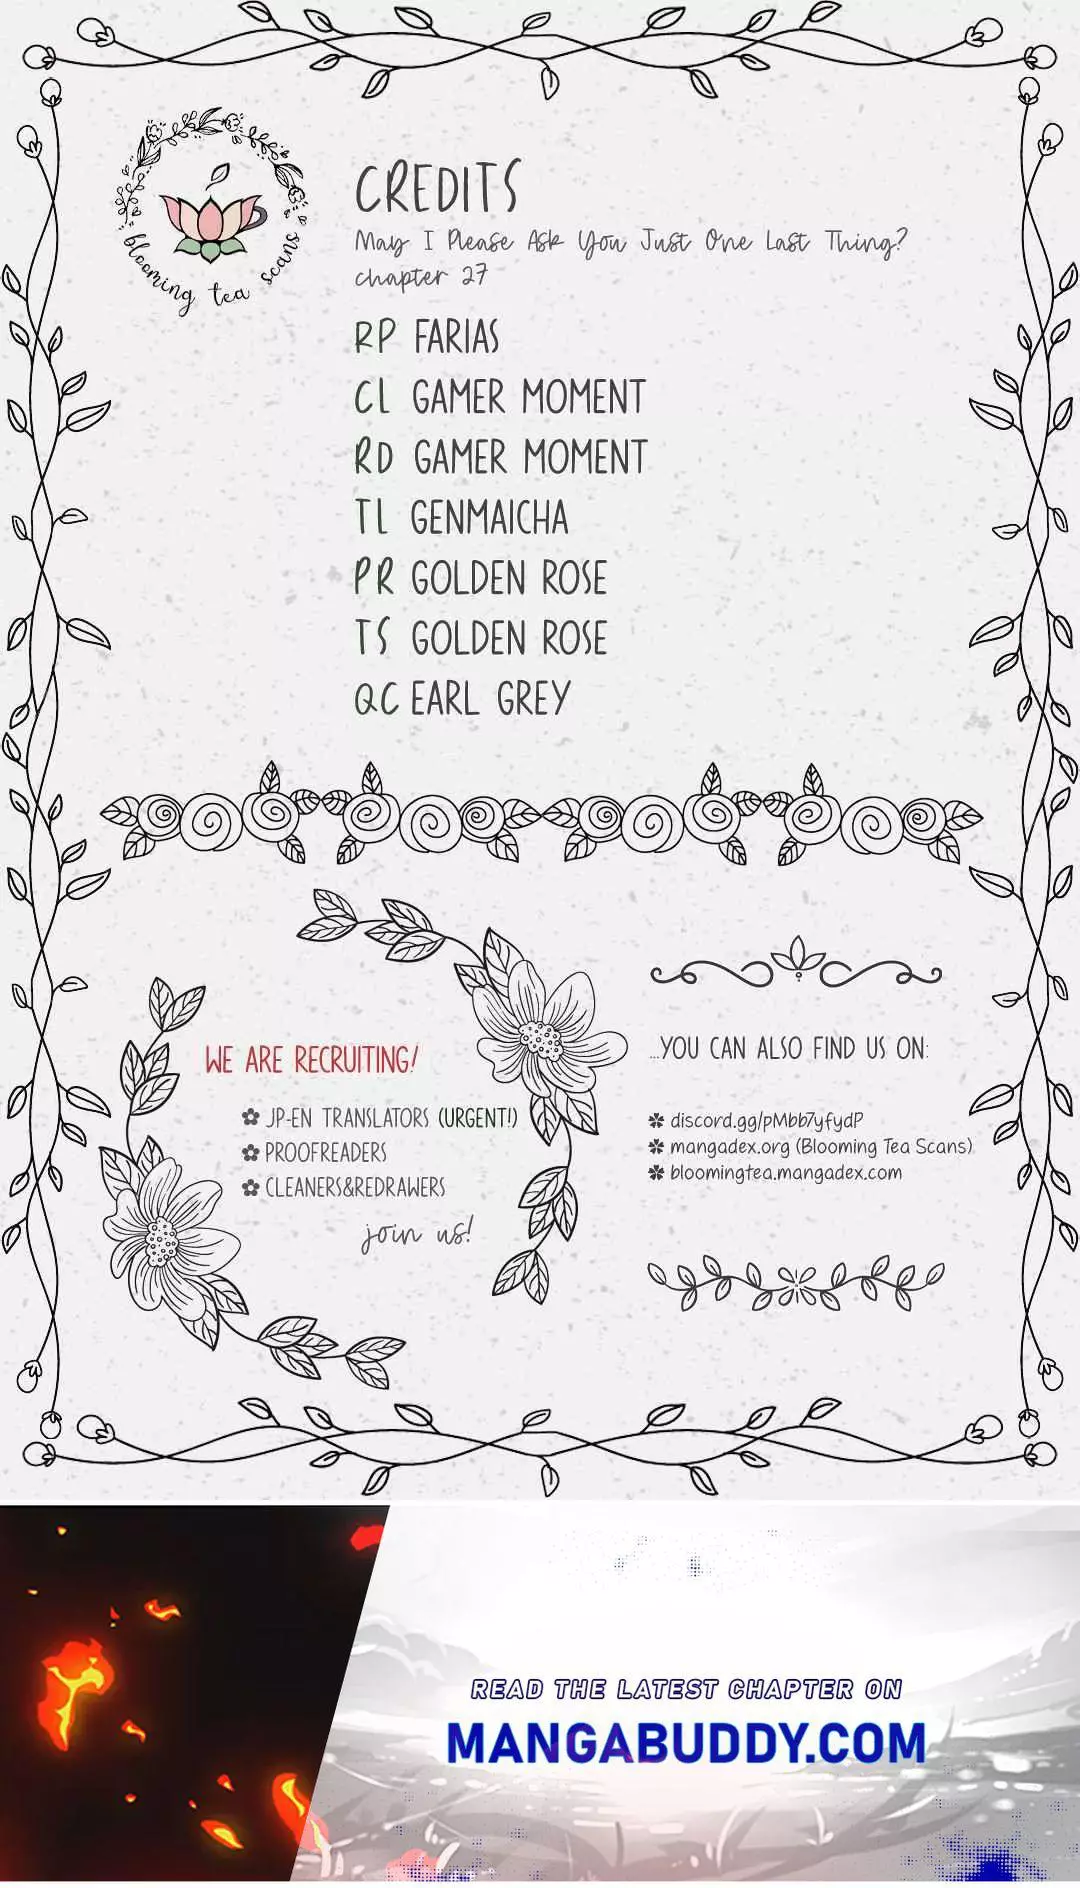 blooming tea scans
CREDITS
May I Please Ask You Just One Last Thing?
chapter 27
RP FARIAS
CL GAMER MOMENT
RD GAMER MOMENT
TL GENMAICHA
PR GOLDEN ROSE
TS GOLDEN ROSE
QC EARL GREY
WE ARE RECRUITING!
JP-EN TRANSLATORS (URGENT!)
PROOFREADERS
CLEANERS&REDRAWERS
join us!
...YOU CAN ALSO FIND US ON:
discord.gg/pMbb7yfydP
mangadex.org (Blooming Tea Scans)
bloomingtea.mangadex.com
READ THE LATEST CHAPTER ON
MANGABUDDY.COM